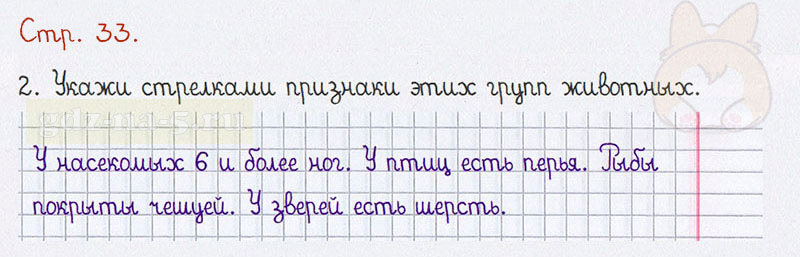 Стр. 33.
2. Укажи стрелками признаки этих групп животных.
gdz-na-5.ru
У насекомых 6 и более ног. У птиц есть перья. Рыбы
покрыты чешуей. У зверей есть шерсть.